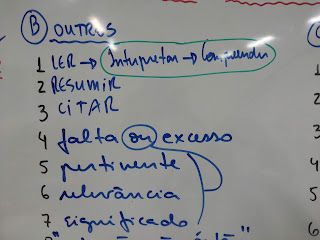 B OUTROS
1 LER → Interpretar → Compreender
2 RESUMIR
3 CITAR
4 falta ou excesso
5 pertinente
6 relevância
7 significado